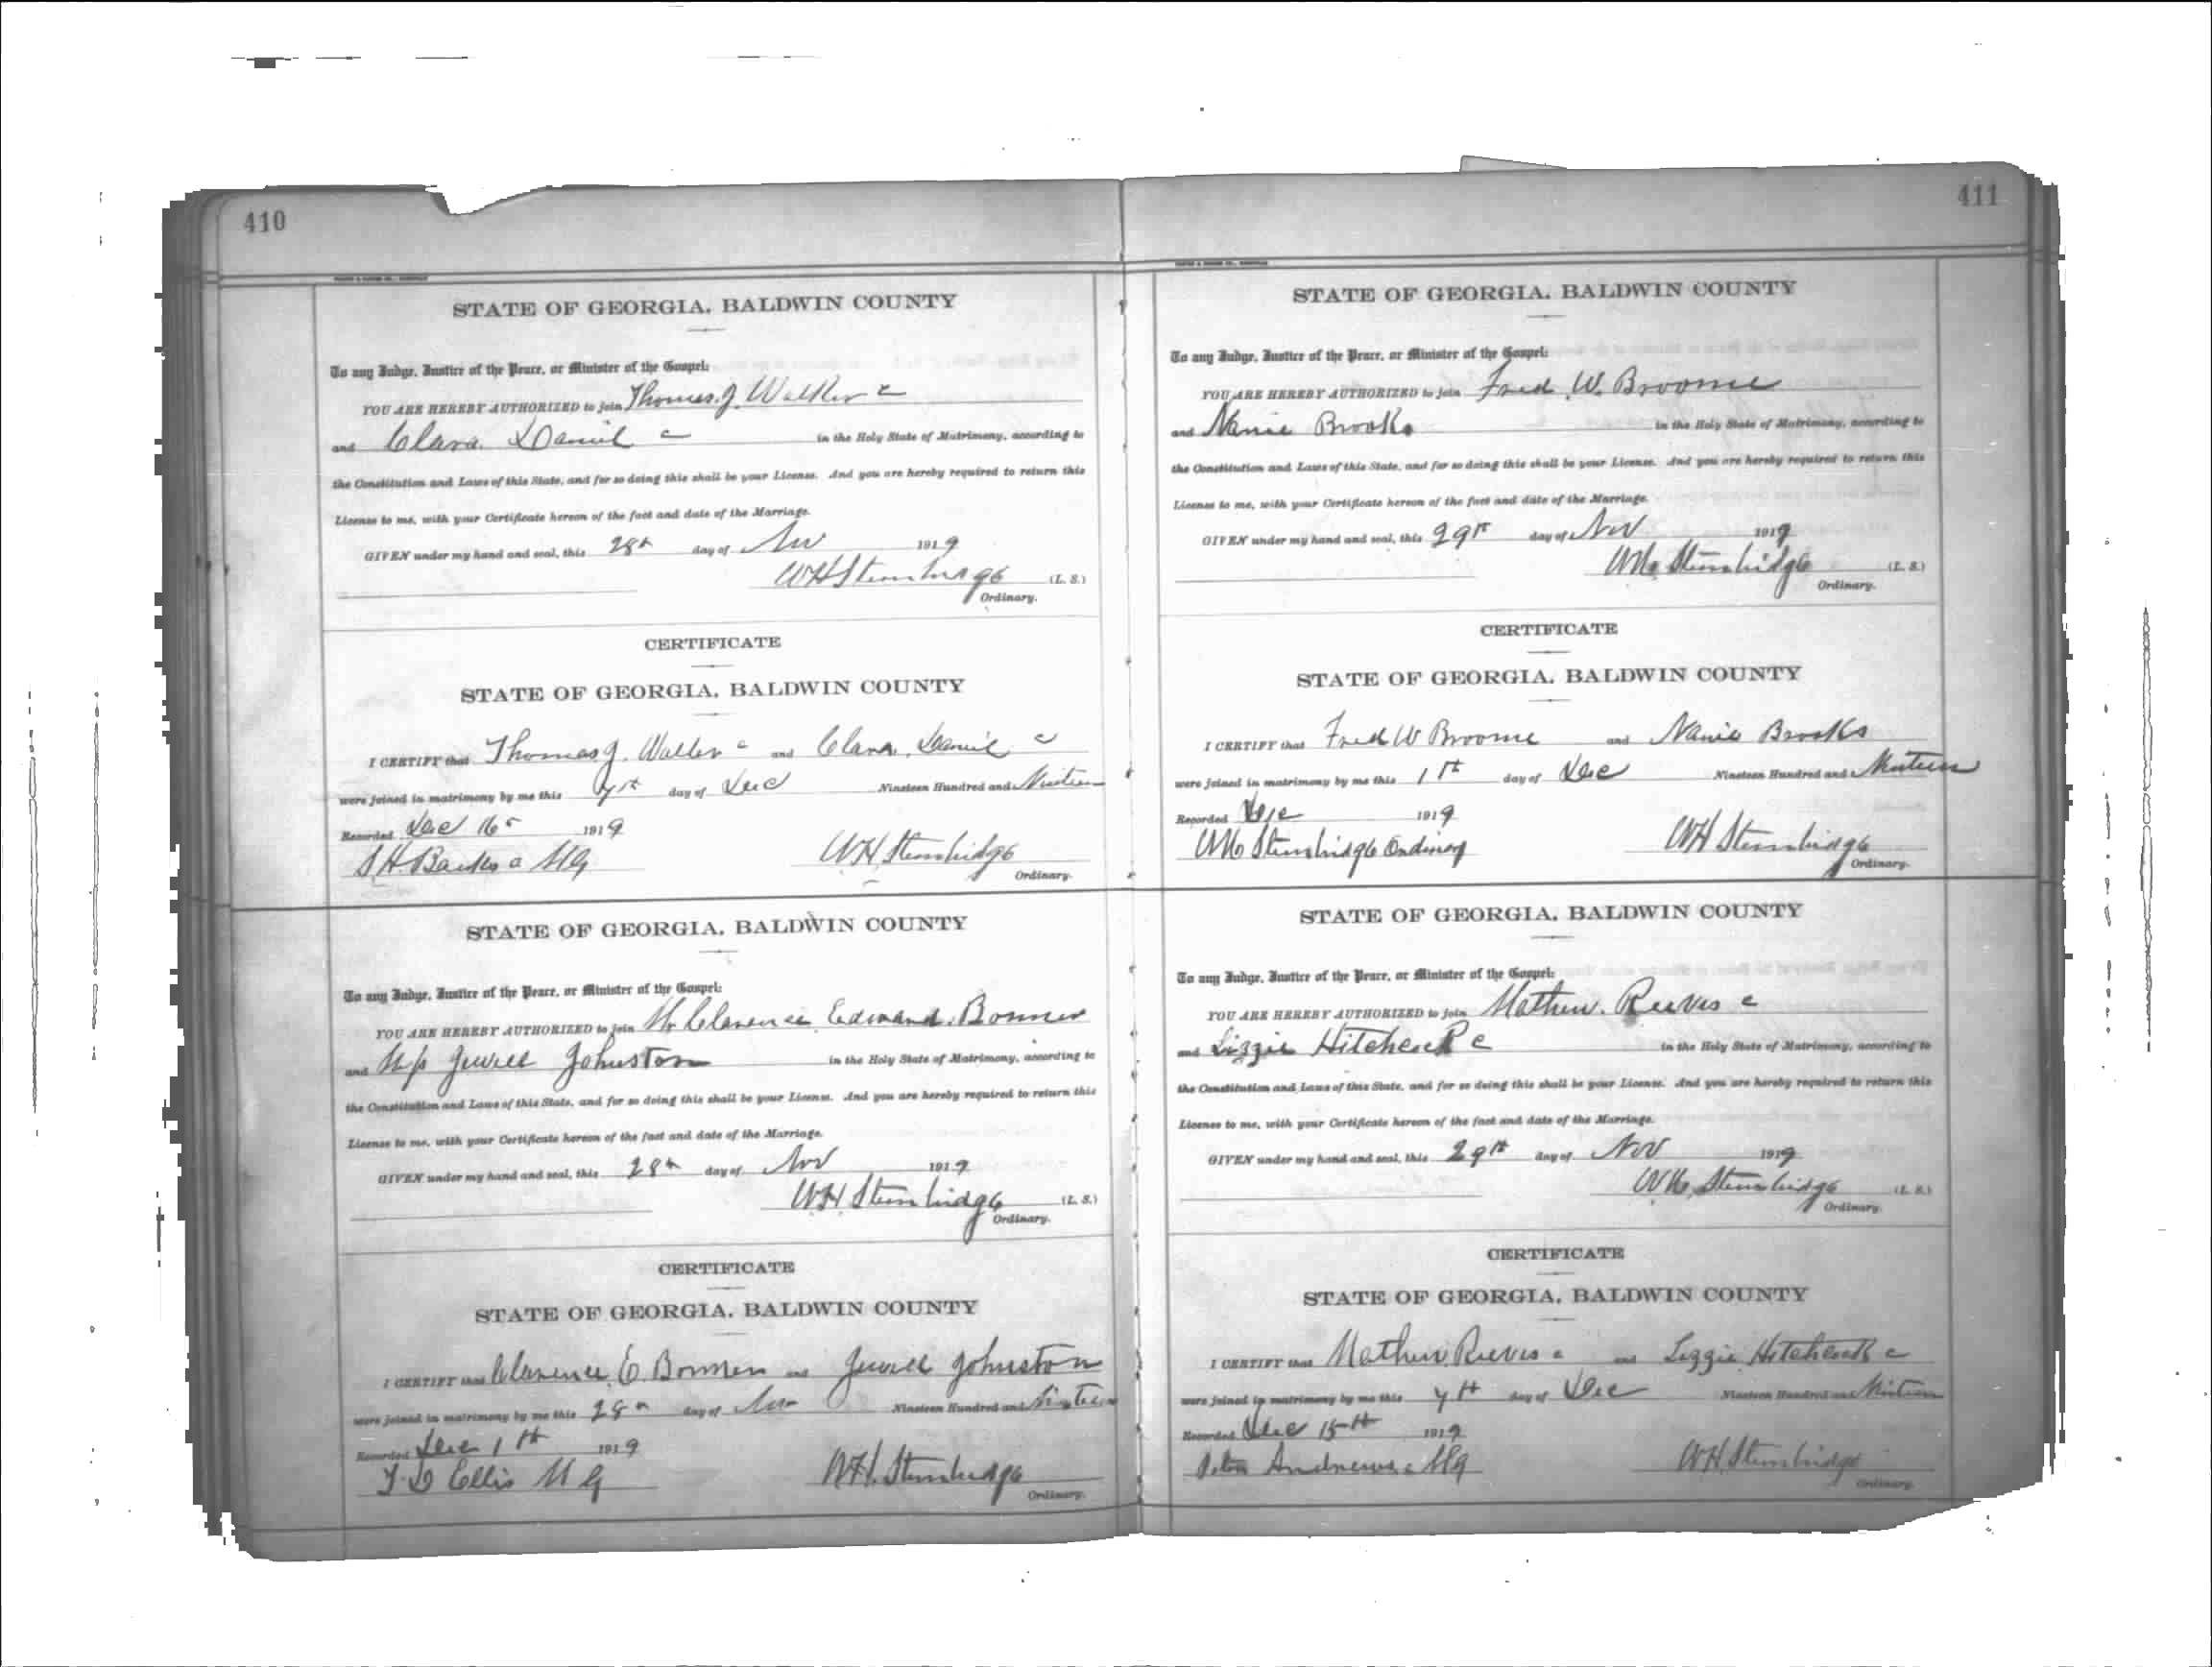 410
STATE OF GEORGIA, BALDWIN COUNTY
To any Judge, Justice of the Peace, or Minister of the Gospel:
YOU ARE HEREBY AUTHORIZED to join Thomas. J. Walker c
and Clara. Daniel c in the Holy State of Matrimony, according to
the Constitution and Laws of this State, and for so doing this shall be your License. And you are hereby required to return this
License to me, with your Certificate hereon of the fact and date of the Marriage.
GIVEN under my hand and seal, this 28th day of Nov 1919
WH Stembridge (L. S.)
Ordinary.
CERTIFICATE
STATE OF GEORGIA, BALDWIN COUNTY
I CERTIFY that Thomas J. Walker c and Clara. Daniel c
were joined in matrimony by me this 7th day of Dec Nineteen Hundred and Nineteen
Recorded Dec 16th 1919
H. c MG WH Stembridge
Ordinary.
STATE OF GEORGIA, BALDWIN COUNTY
To any Judge, Justice of the Peace, or Minister of the Gospel:
YOU ARE HEREBY AUTHORIZED to join Mr Clarence Edward. Bonner
and Jewell Johnston in the Holy State of Matrimony, according to
the Constitution and Laws of this State, and for so doing this shall be your License. And you are hereby required to return this
License to me, with your Certificate hereon of the fact and date of the Marriage.
GIVEN under my hand and seal, this 28th day of Nov 1919
WH Stembridge (L. S.)
Ordinary.
CERTIFICATE
STATE OF GEORGIA, BALDWIN COUNTY
I CERTIFY that Clarence E. Bonner and Jewell Johnston
were joined in matrimony by me this 28th day of Nov Nineteen Hundred and Nineteen
Recorded Dec 1th 1919
Ellis M G WH. Stembridge
Ordinary.
411
STATE OF GEORGIA, BALDWIN COUNTY
To any Judge, Justice of the Peace, or Minister of the Gospel:
YOU ARE HEREBY AUTHORIZED to join Fred. W. Broome
and Nanie Brooks in the Holy State of Matrimony, according to
the Constitution and Laws of this State, and for so doing this shall be your License. And you are hereby required to return this
License to me, with your Certificate hereon of the fact and date of the Marriage.
GIVEN under my hand and seal, this 29th day of Nov 1919
WH Stembridge (L. S.)
Ordinary.
CERTIFICATE
STATE OF GEORGIA, BALDWIN COUNTY
I CERTIFY that Fred W Broome and Nanie Brooks
were joined in matrimony by me this 1th day of Dec Nineteen Hundred and Nineteen
Recorded Dec 1919
WH Stembridge Ordinary WH Stembridge
Ordinary.
STATE OF GEORGIA, BALDWIN COUNTY
To any Judge, Justice of the Peace, or Minister of the Gospel:
YOU ARE HEREBY AUTHORIZED to join Mathew. Reeves c
and Lizzie Hitchcock c in the Holy State of Matrimony, according to
the Constitution and Laws of this State, and for so doing this shall be your License. And you are hereby required to return this
License to me, with your Certificate hereon of the fact and date of the Marriage.
GIVEN under my hand and seal, this 29th day of Nov 1919
WH Stembridge (L. S.)
Ordinary.
CERTIFICATE
STATE OF GEORGIA, BALDWIN COUNTY
I CERTIFY that Mathew Reeves c and Lizzie Hitchcock c
were joined in matrimony by me this 7th day of Dec Nineteen Hundred and Nineteen
Recorded Dec 15th 1919
Andrews c MG WH Stembridge
Ordinary.